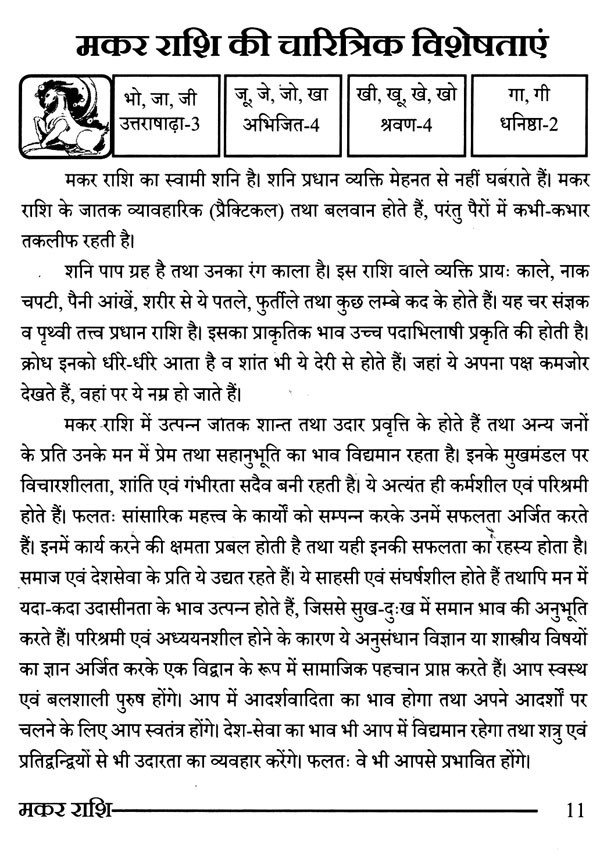 मकर राशि की चारित्रिक विशेषताएं
भो, जा, जी
उत्तराषाढ़ा-3
जू, जे, जो, खा
अभिजित-4
खी, खू, खे, खो
श्रवण-4
गा, गी
धनिष्ठा-2
मकर राशि का स्वामी शनि है। शनि प्रधान व्यक्ति मेहनत से नहीं घबराते हैं। मकर
राशि के जातक व्यावहारिक (प्रैक्टिकल) तथा बलवान होते हैं, परंतु पैरों में कभी-कभार
तकलीफ रहती है।
शनि पाप ग्रह है तथा उनका रंग काला है। इस राशि वाले व्यक्ति प्रायः काले, नाक
चपटी, पैनी आंखें, शरीर से ये पतले, फुर्तीले तथा कुछ लम्बे कद के होते हैं। यह चर संज्ञक
व पृथ्वी तत्त्व प्रधान राशि है। इसका प्राकृतिक भाव उच्च पदाभिलाषी प्रकृति की होती है।
क्रोध इनको धीरे-धीरे आता है व शांत भी ये देरी से होते हैं। जहां ये अपना पक्ष कमजोर
देखते हैं, वहां पर ये नम्र हो जाते हैं।
मकर राशि में उत्पन्न जातक शान्त तथा उदार प्रवृत्ति के होते हैं तथा अन्य जनों
के प्रति उनके मन में प्रेम तथा सहानुभूति का भाव विद्यमान रहता है। इनके मुखमंडल पर
विचारशीलता, शांति एवं गंभीरता सदैव बनी रहती है। ये अत्यंत ही कर्मशील एवं परिश्रमी
होते हैं। फलतः सांसारिक महत्त्व के कार्यों को सम्पन्न करके उनमें सफलता अर्जित करते
हैं। इनमें कार्य करने की क्षमता प्रबल होती है तथा यही इनकी सफलता का रहस्य होता है।
समाज एवं देशसेवा के प्रति ये उद्यत रहते हैं। ये साहसी एवं संघर्षशील होते हैं तथापि मन में
यदा-कदा उदासीनता के भाव उत्पन्न होते हैं, जिससे सुख-दुःख में समान भाव की अनुभूति
करते हैं। परिश्रमी एवं अध्ययनशील होने के कारण ये अनुसंधान विज्ञान या शास्त्रीय विषयों
का ज्ञान अर्जित करके एक विद्वान के रूप में सामाजिक पहचान प्राप्त करते हैं। आप स्वस्थ
एवं बलशाली पुरुष होंगे। आप में आदर्शवादिता का भाव होगा तथा अपने आदर्शों पर
चलने के लिए आप स्वतंत्र होंगे। देश-सेवा का भाव भी आप में विद्यमान रहेगा तथा शत्रु एवं
प्रतिद्वन्द्वियों से भी उदारता का व्यवहार करेंगे। फलतः वे भी आपसे प्रभावित होंगे।
मकर राशि 11